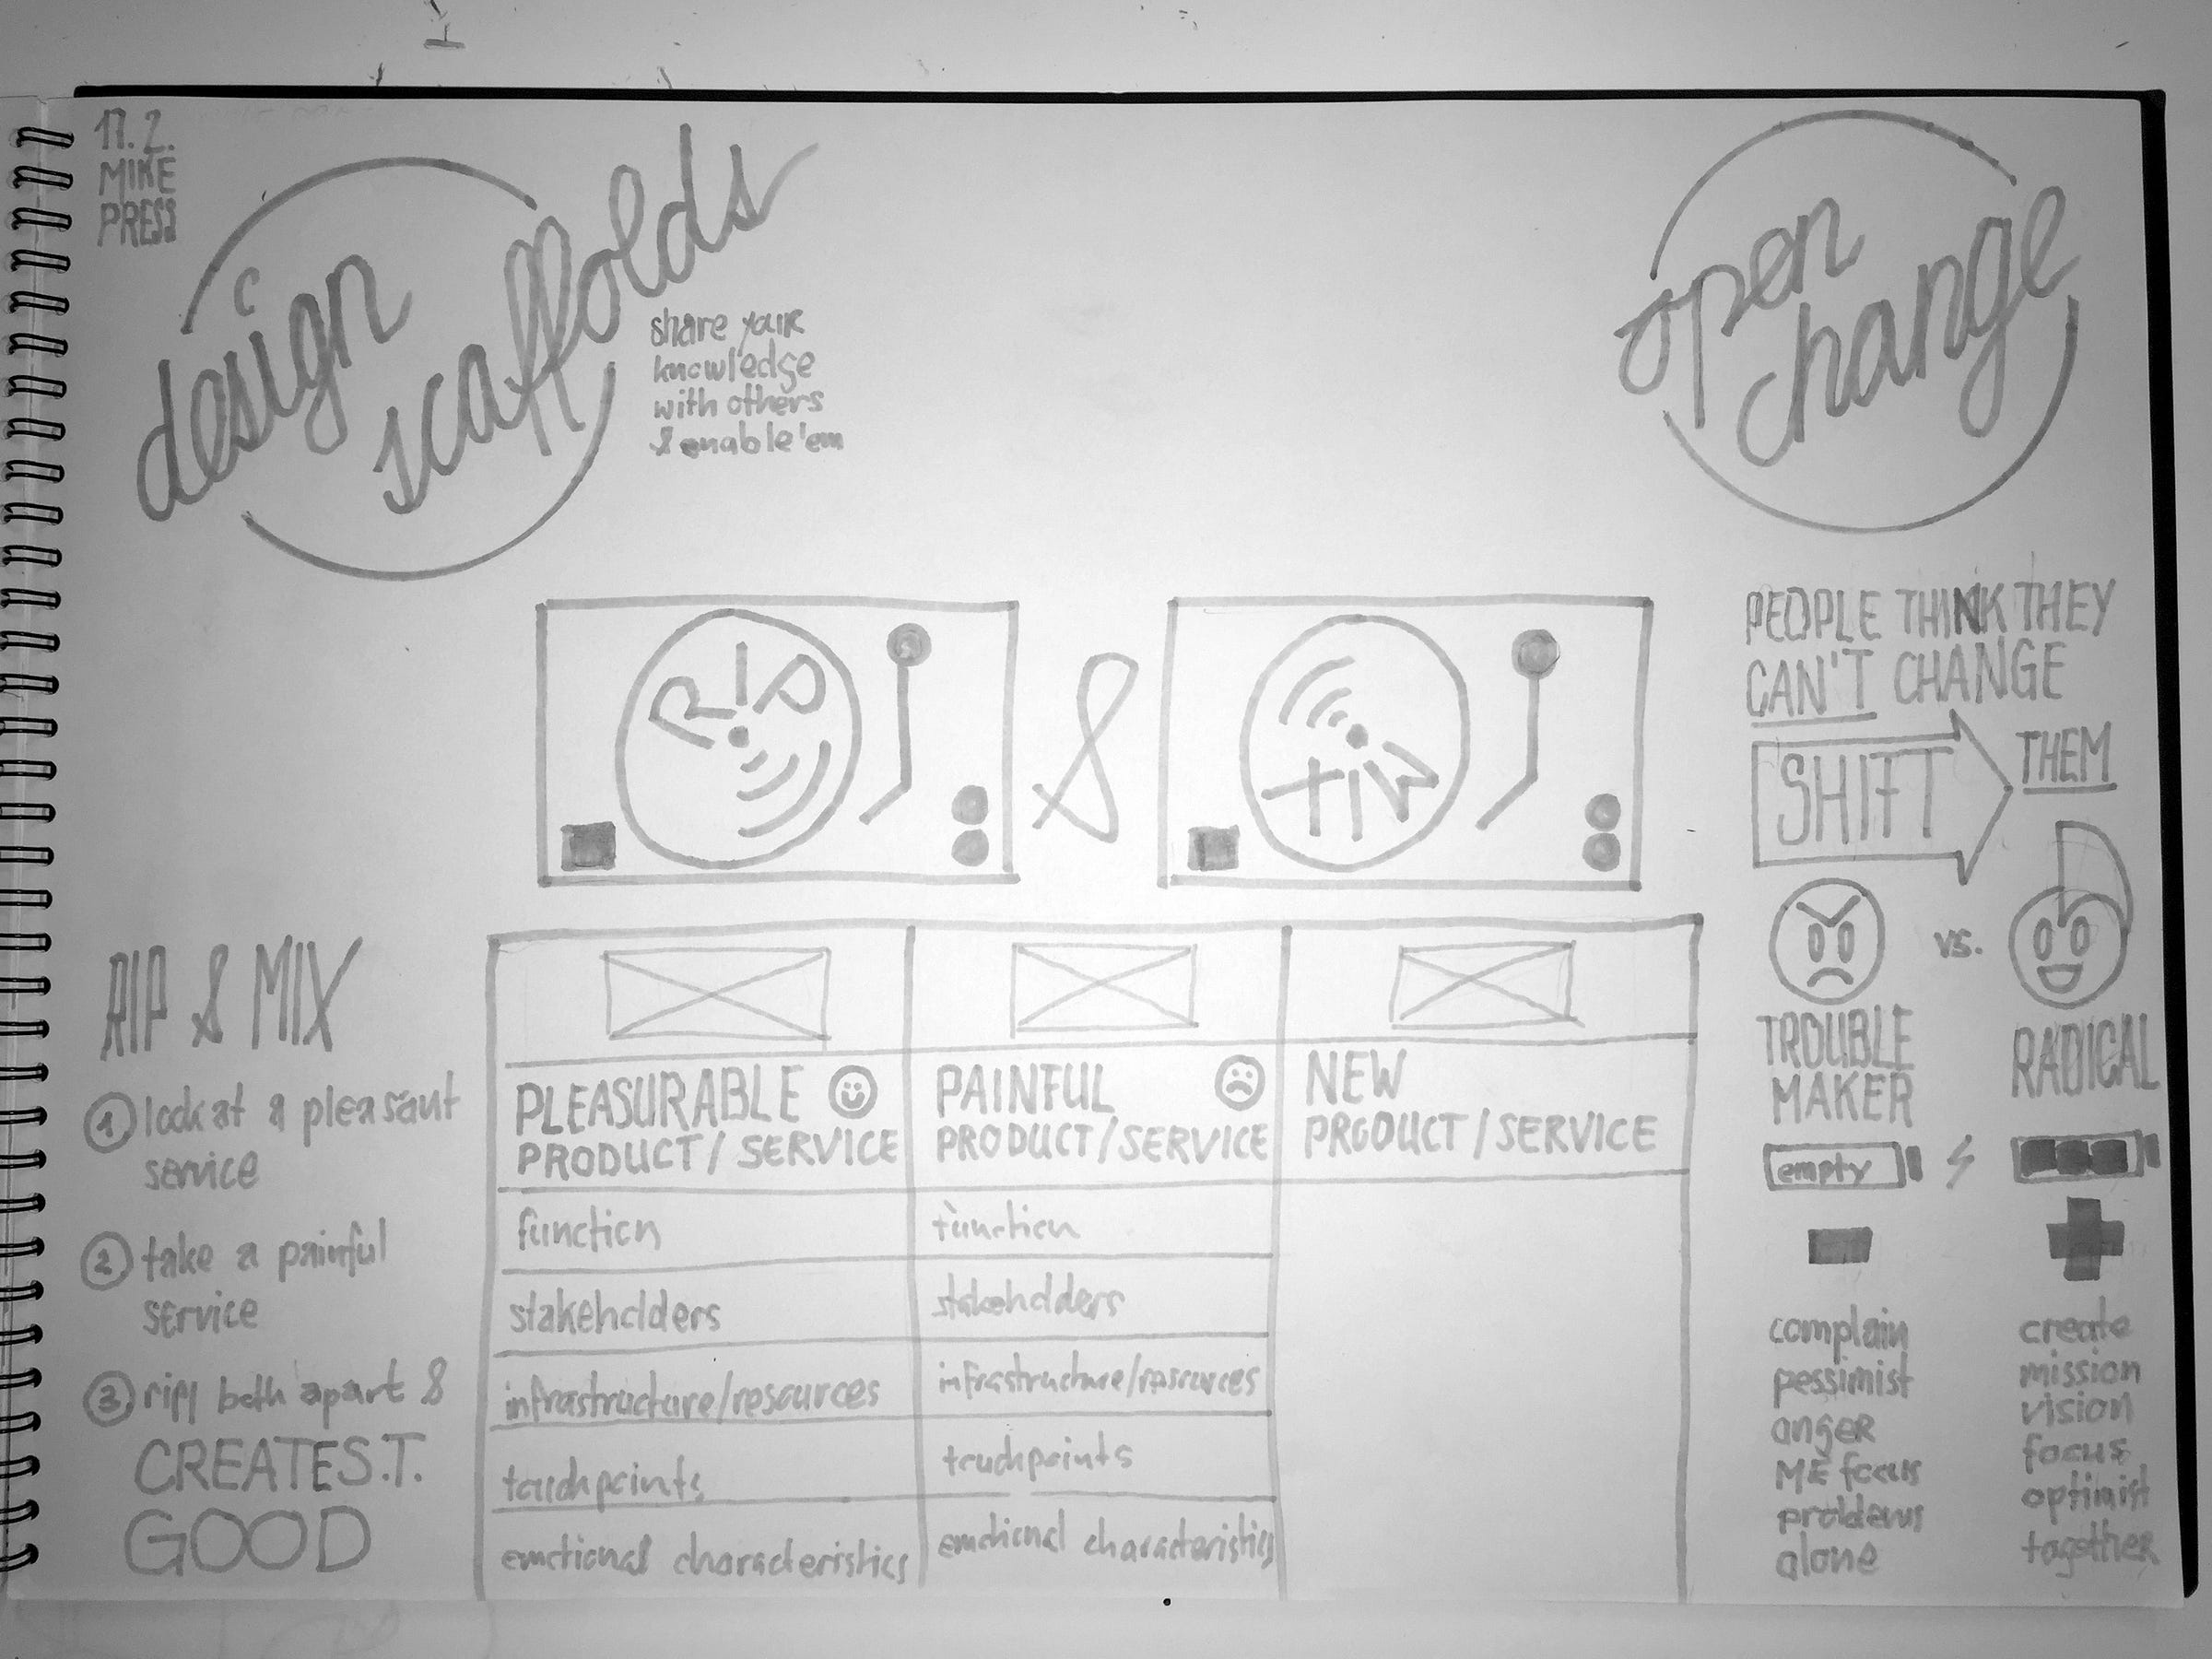 17. 2.
MIKE
PRESS
design
scaffolds
share your
knowledge
with others
& enable 'em
open
change
RIP
&
MIX
PEOPLE THINK THEY
CAN'T CHANGE
THEM
SHIFT
vs.
TROUBLE
MAKER
RADICAL
empty
complain
pessimist
anger
ME focus
problems
alone
create
mission
vision
focus
optimist
together
RIP & MIX
1 look at a pleasant
service
2 take a painful
service
3 rip both apart &
CREATE S.T.
GOOD
PLEASURABLE
PRODUCT / SERVICE
function
stakeholders
infrastructure/resources
touchpoints
emotional characteristics
PAINFUL
PRODUCT / SERVICE
function
stakeholders
infrastructure/resources
touchpoints
emotional characteristics
NEW
PRODUCT / SERVICE